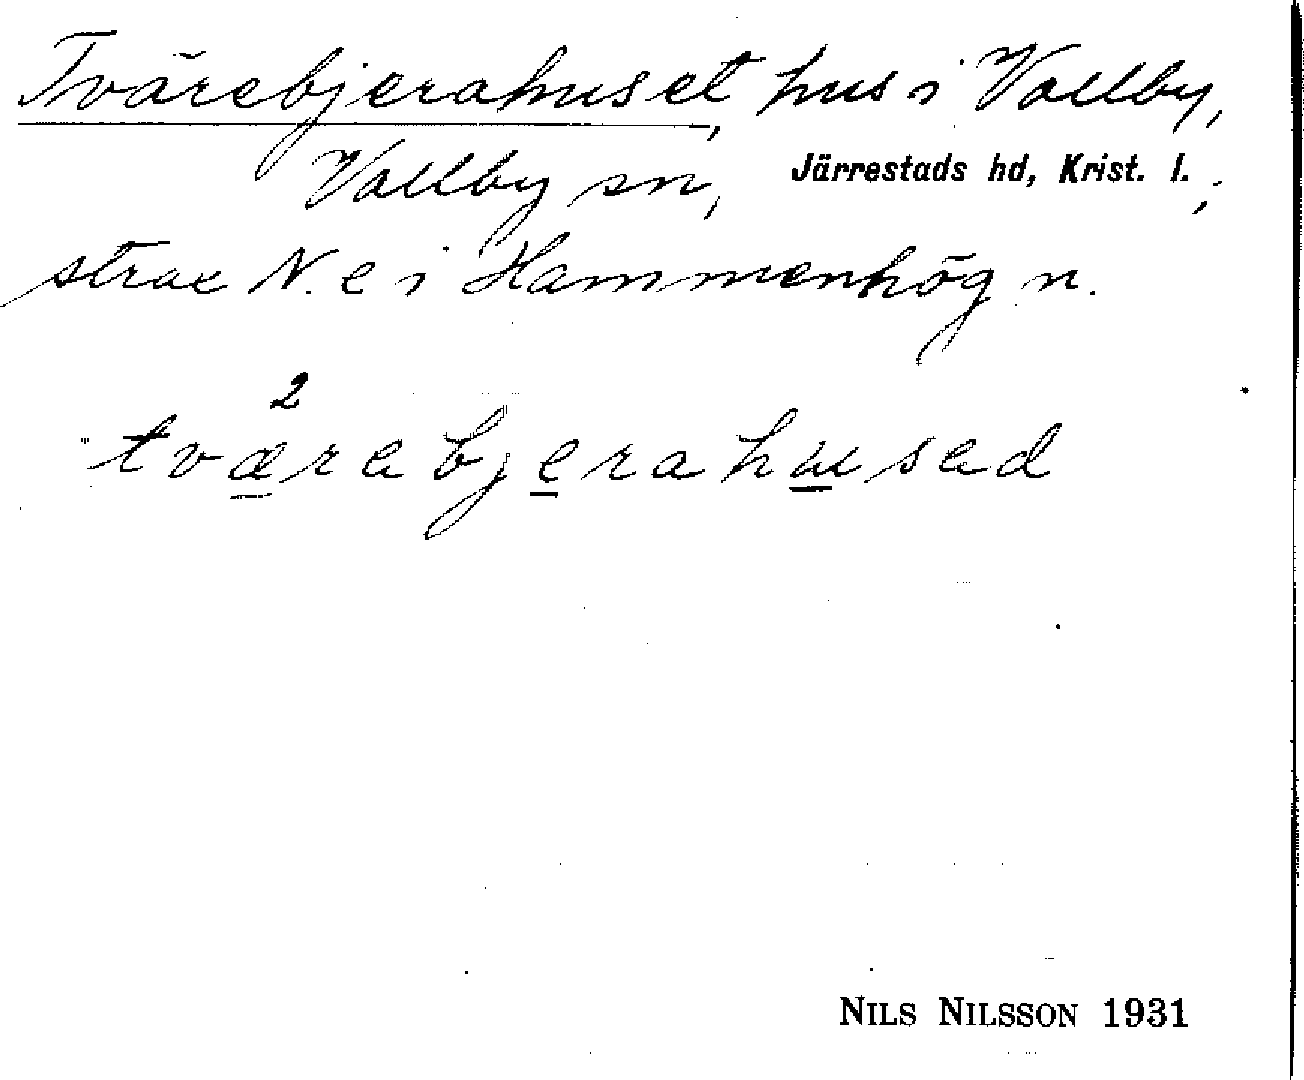 Tvärebjerahuset, hus i Vallby,
Vallby sn, Järrestads hd, Krist. l.;
strax N. e i Hammenhög n.
2
"tværebjerahused
NILS NILSSON 1931